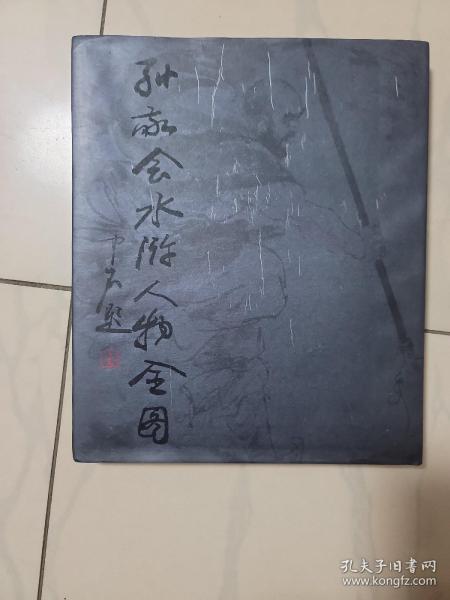 孙敬会水浒人物全图
中石题
孔夫子旧书网
www.kongfz.com